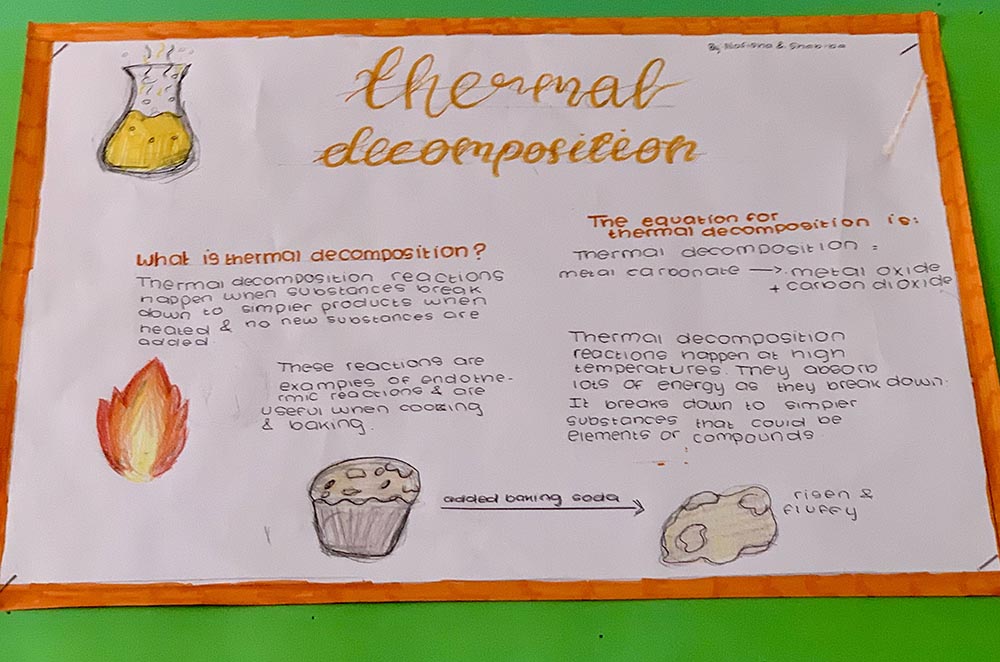 By & 
thermal
decomposition
What is thermal decomposition?
Thermal decomposition reactions
happen when substances break
down to simpler products when
heated & no new substances are
added.
These reactions are
examples of endothe-
rmic reactions & are
useful when cooking
& baking.
The equation for
thermal decomposition is:
Thermal decomposition =
metal carbonate → metal oxide
+ carbon dioxide
Thermal decomposition
reactions happen at high
temperatures. They absorb
lots of energy as they break down.
It breaks down to simpler
substances that could be
elements or compounds.
added baking soda
risen &
fluffy